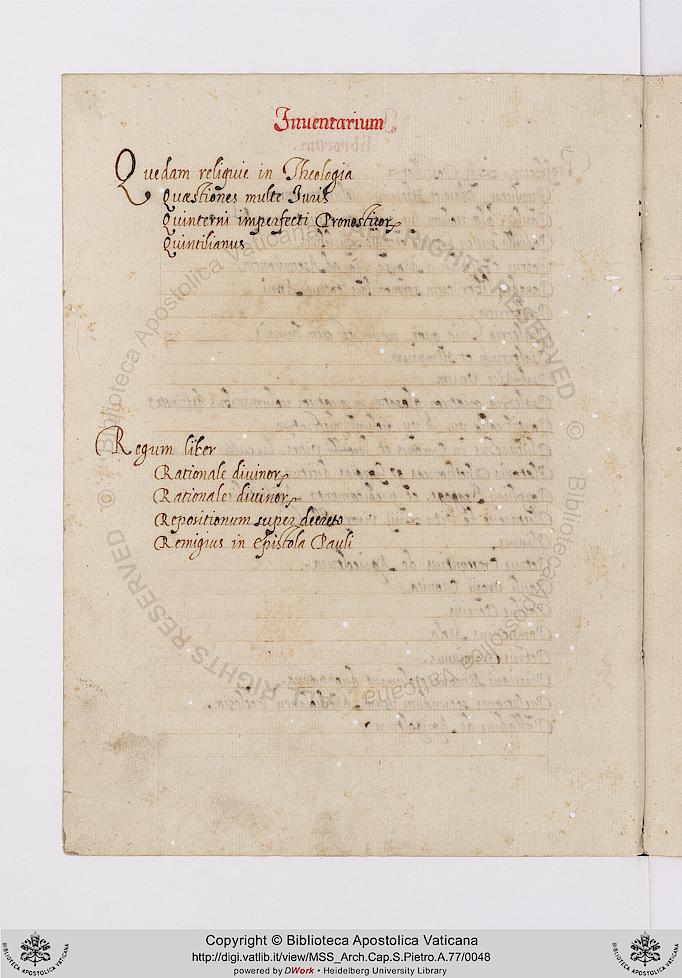 Inuentarium
Quedam reliquie in Theologia
Quæstiones multe Iuris
Quinterni imperfecti Pronosticoꝝ
Quintilianus
Regum liber
Rationale divinoꝝ
Rationale divinoꝝ
Repositionum super decreto
Remigius in Epistola Pauli
© Biblioteca Apostolica Vaticana ALL RIGHTS RESERVED
© Biblioteca Apostolica Vaticana ALL RIGHTS RESERVED
Copyright © Biblioteca Apostolica Vaticana
http://digi.vatlib.it/view/MSS_Arch.Cap.S.Pietro.A.77/0048
powered by DWork • Heidelberg University Library